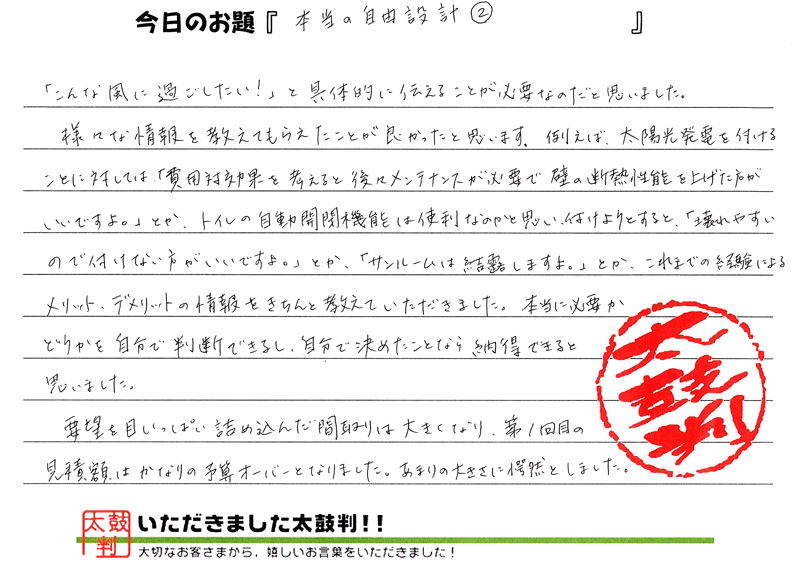 今日のお題『 本当の自由設計② 』
「こんな風に過ごしたい!」と具体的に伝えることが必要なのだと思いました。
様々な情報を教えてもらえたことが良かったと思います。例えば、太陽光発電を付ける
ことに対しては「費用対効果を考えると後々メンテナンスが必要で壁の断熱性能を上げた方が
いいですよ。」とか、トイレの自動開閉機能は便利なのかと思い、付けようとすると、「壊れやすい
ので付けない方がいいですよ。」とか、「サンルームは結露しますよ。」とか、これまでの経験による
メリット、デメリットの情報をきちんと教えていただきました。本当に必要か
どうかを自分で判断できるし、自分で決めたことなら納得できると
思いました。
要望を目いっぱい詰め込んだ間取りは大きくなり、第1回目の
見積額はかなりの予算オーバーとなりました。あまりの大きさに愕然としました。
太鼓判
太鼓判
いただきました太鼓判!!
大切なお客さまから、嬉しいお言葉をいただきました!